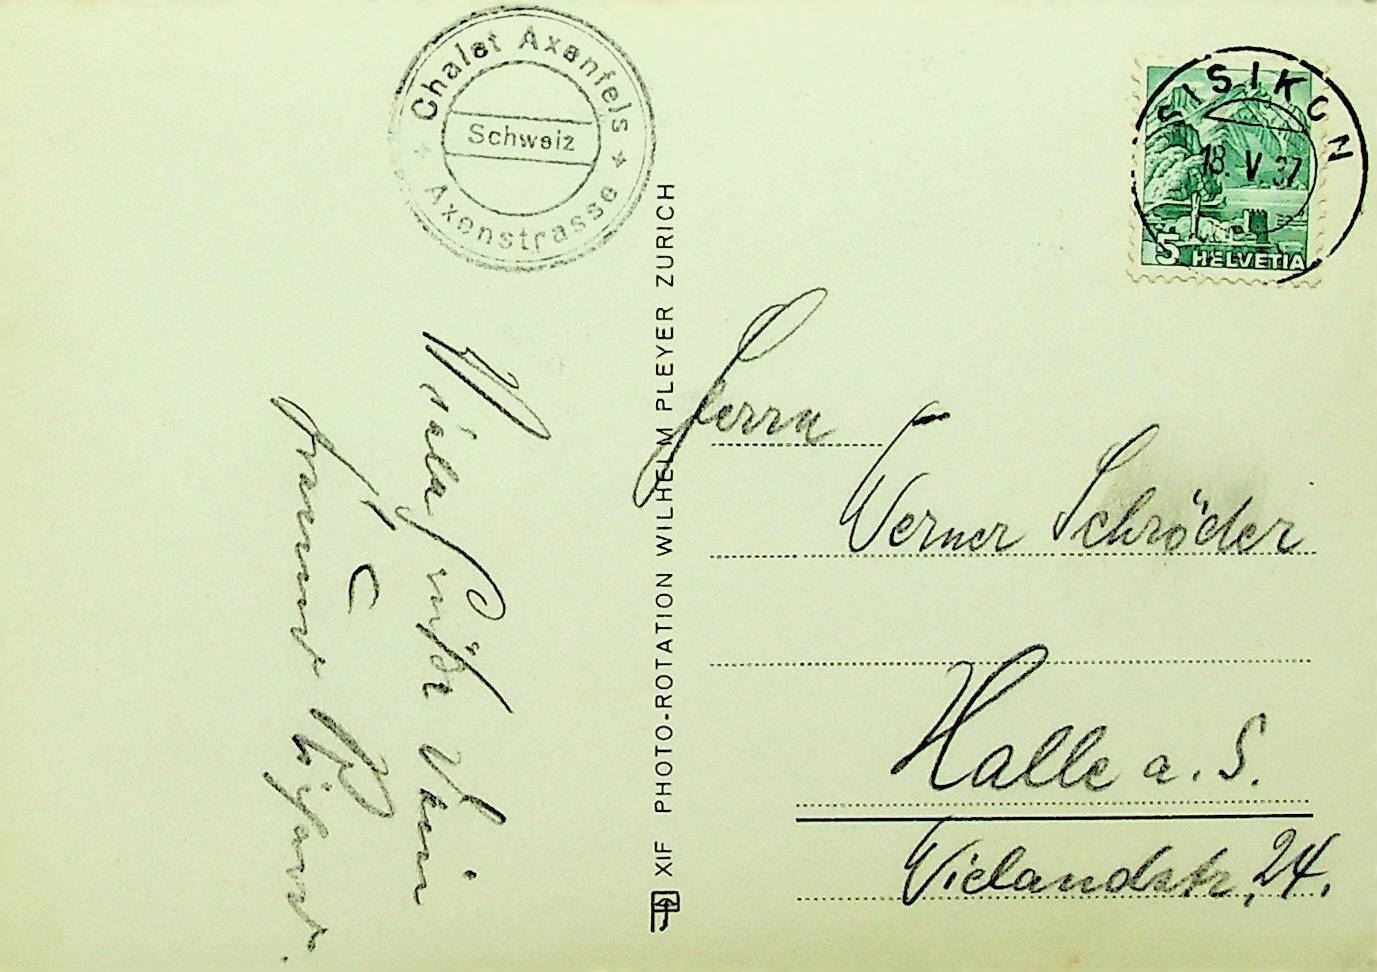 Chalet Axenfels
Schweiz
Axenstrasse
SISIKON
18. V. 37
5 HELVETIA
Viele Grüße Dein
Freund
XIF PHOTO-ROTATION WILHELM PLEYER ZURICH
Herrn
Werner Schröder
Halle a. S.
Wielandstr. 24.